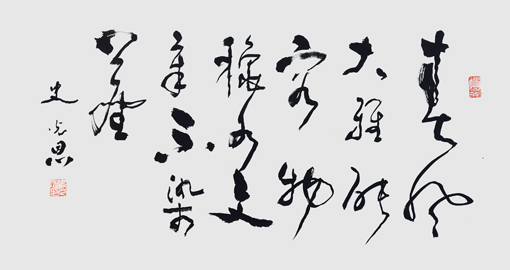 春风
大雅能
容物
秋水文
章不染
塵
史